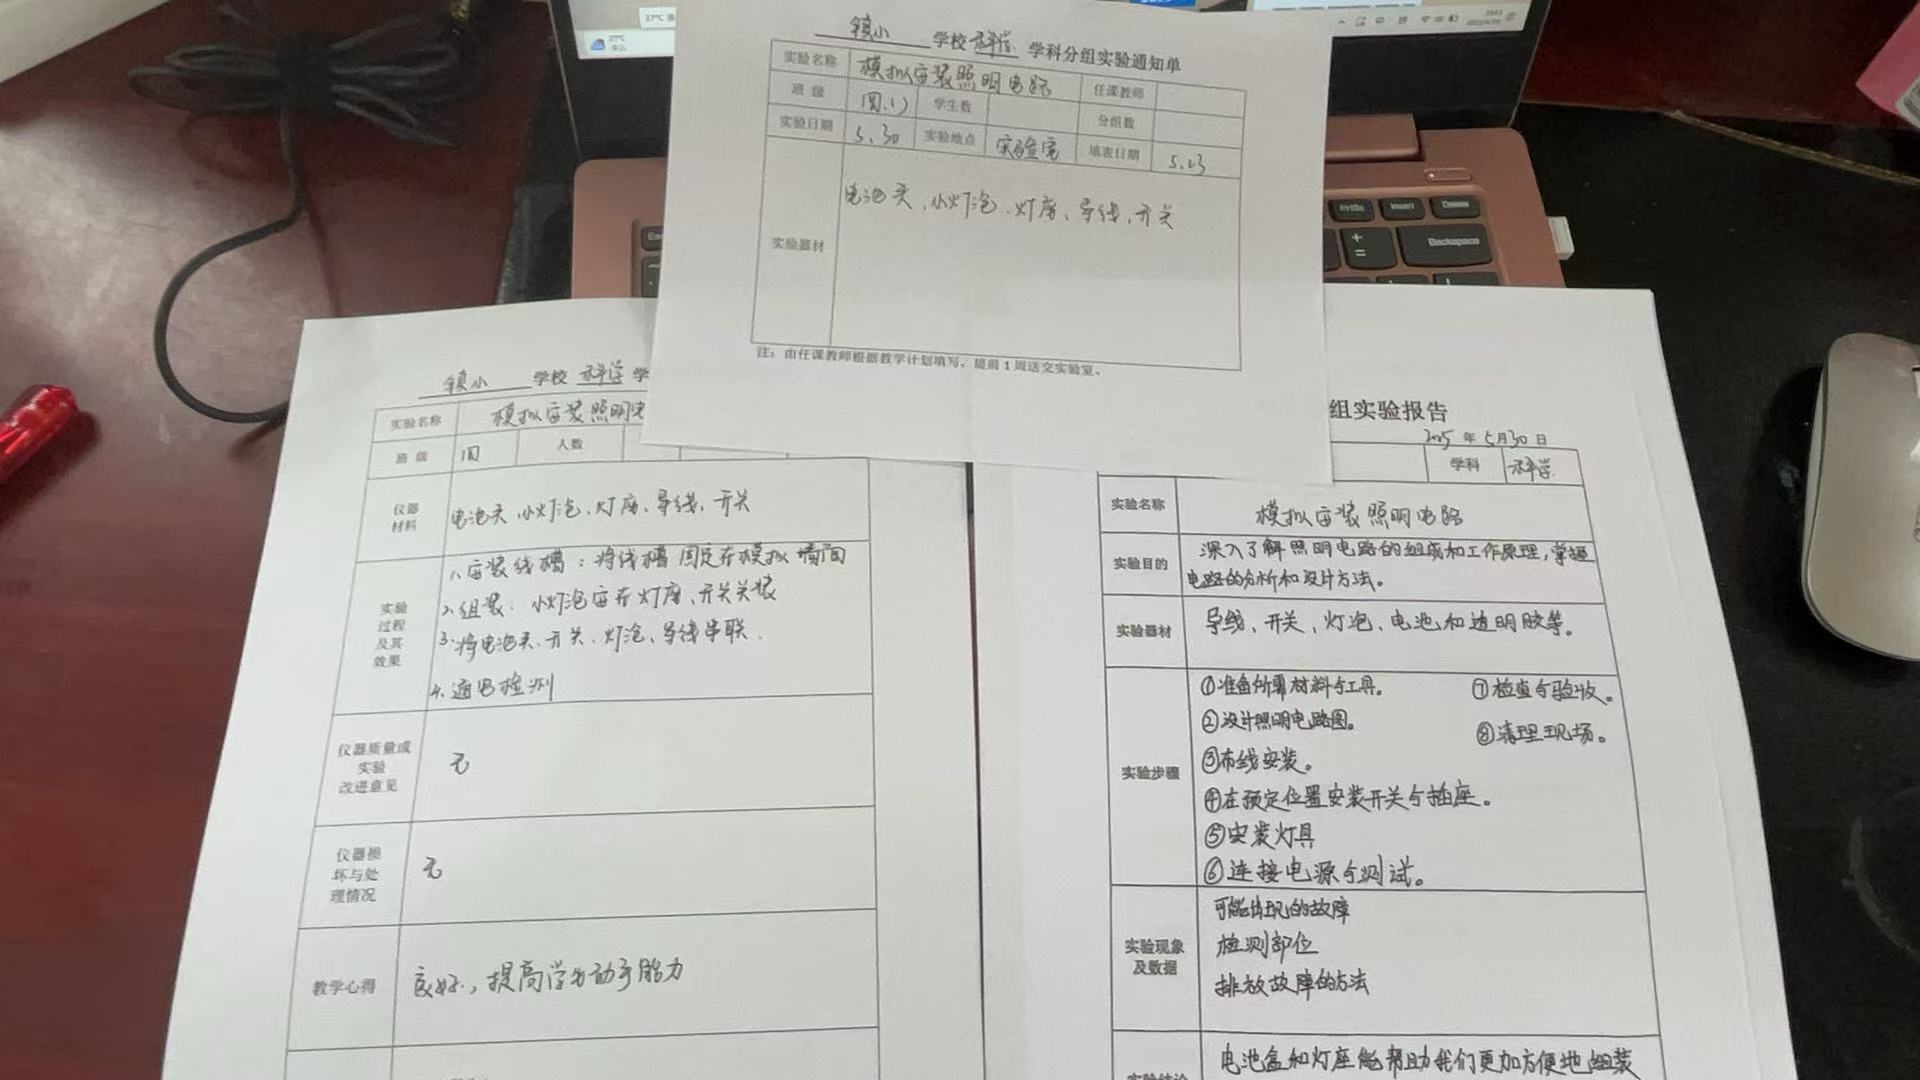 27℃
镇小 学校 科学 学科分组实验通知单
实验名称 模拟安装照明电路 任课教师
班 级 四.1) 学生数 分组数
实验日期 5.30 实验地点 实验室 填表日期 5.23
实验器材
电池夹、小灯泡、灯座、导线、开关
注：由任课教师根据教学计划填写，提前1周送交实验室。
PrtSc Insert Delete
Backspace
Esc
镇小 学校 科学 学
实验名称 模拟安装照明电
班 级 四 人数
仪器材料
电池夹、小灯泡、灯座、导线、开关
实验过程及其效果
1、安装线槽：将线槽固定在模拟墙面
2、组装：小灯泡安在灯座、开关关装
3、将电池夹、开关、灯泡、导线串联.
4、通电检测
仪器质量或实验改进意见
无
仪器损坏与处理情况
无
教学心得
良好，提高学生动手能力
组实验报告
2025 年 5 月 30 日
学科 科学
实验名称 模拟安装照明电路
实验目的
深入了解照明电路的组成和工作原理，掌握
电路的分析和设计方法。
实验器材 导线、开关、灯泡、电池和透明胶等。
实验步骤
①准备所需材料与工具。
②设计照明电路图。
③布线安装。
④在预定位置安装开关与插座。
⑤安装灯具
⑥连接电源与测试。
⑦检查与验收。
⑧清理现场。
实验现象及数据
可能出现的故障
检测部位
排放故障的方法
实验结论
电池盒和灯座能帮助我们更加方便地组装